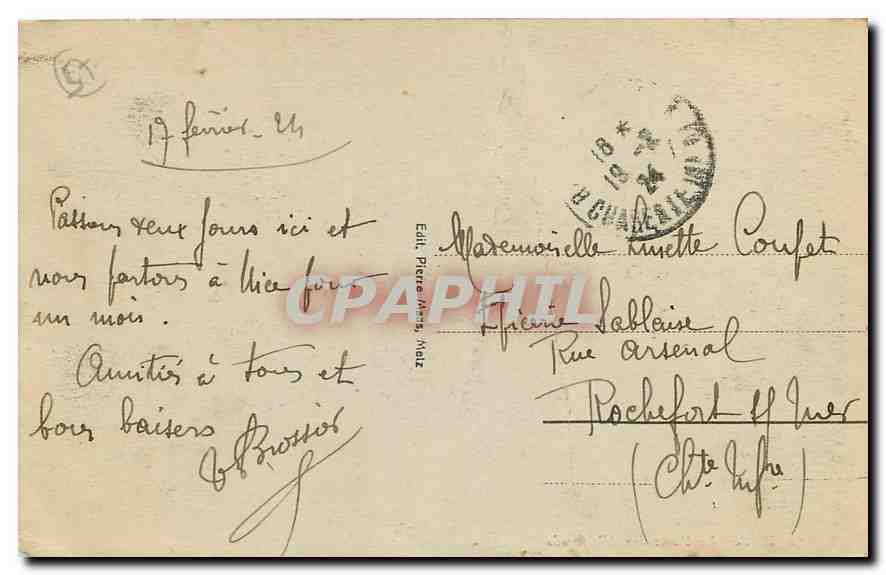 17 février - 24
Passons deux jours ici et
nous partons à Nice pour
un mois.
Amitiés à tous et
bons baisers
Brossier
Edit. Pierre Mars, Metz
18 *
19 -2
24
CHARENTE INF
Mademoiselle Lusette Coupet
Epicerie Sablaise
Rue Arsenal
Rochefort s/ Mer
(Chte Infre)
CPAPHIL